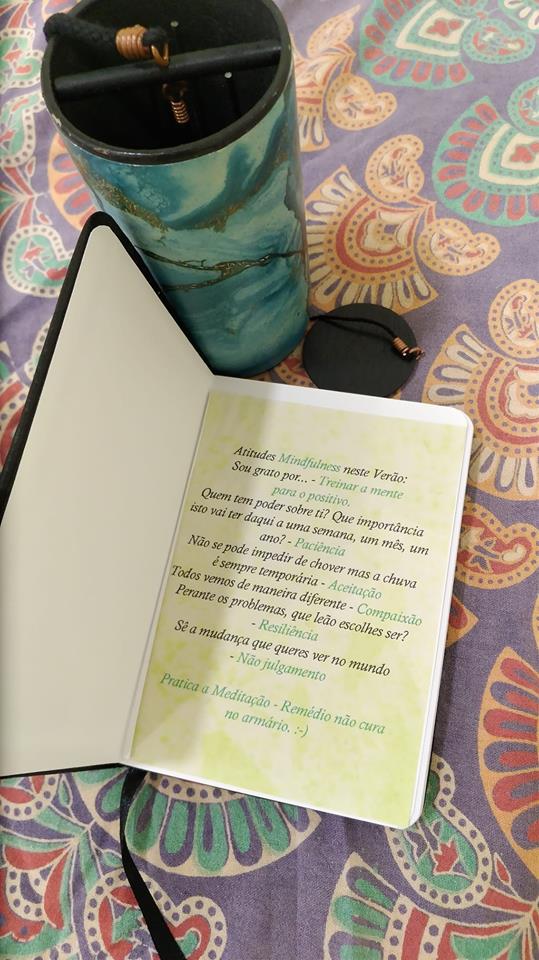 Atitudes Mindfulness neste Verão:
Sou grato por... - Treinar a mente
para o positivo.
Quem tem poder sobre ti? Que importância
isto vai ter daqui a uma semana, um mês, um
ano? - Paciência
Não se pode impedir de chover mas a chuva
é sempre temporária - Aceitação
Todos vemos de maneira diferente - Compaixão
Perante os problemas, que leão escolhes ser?
- Resiliência
Sê a mudança que queres ver no mundo
- Não julgamento
Pratica a Meditação - Remédio não cura
no armário. :-)